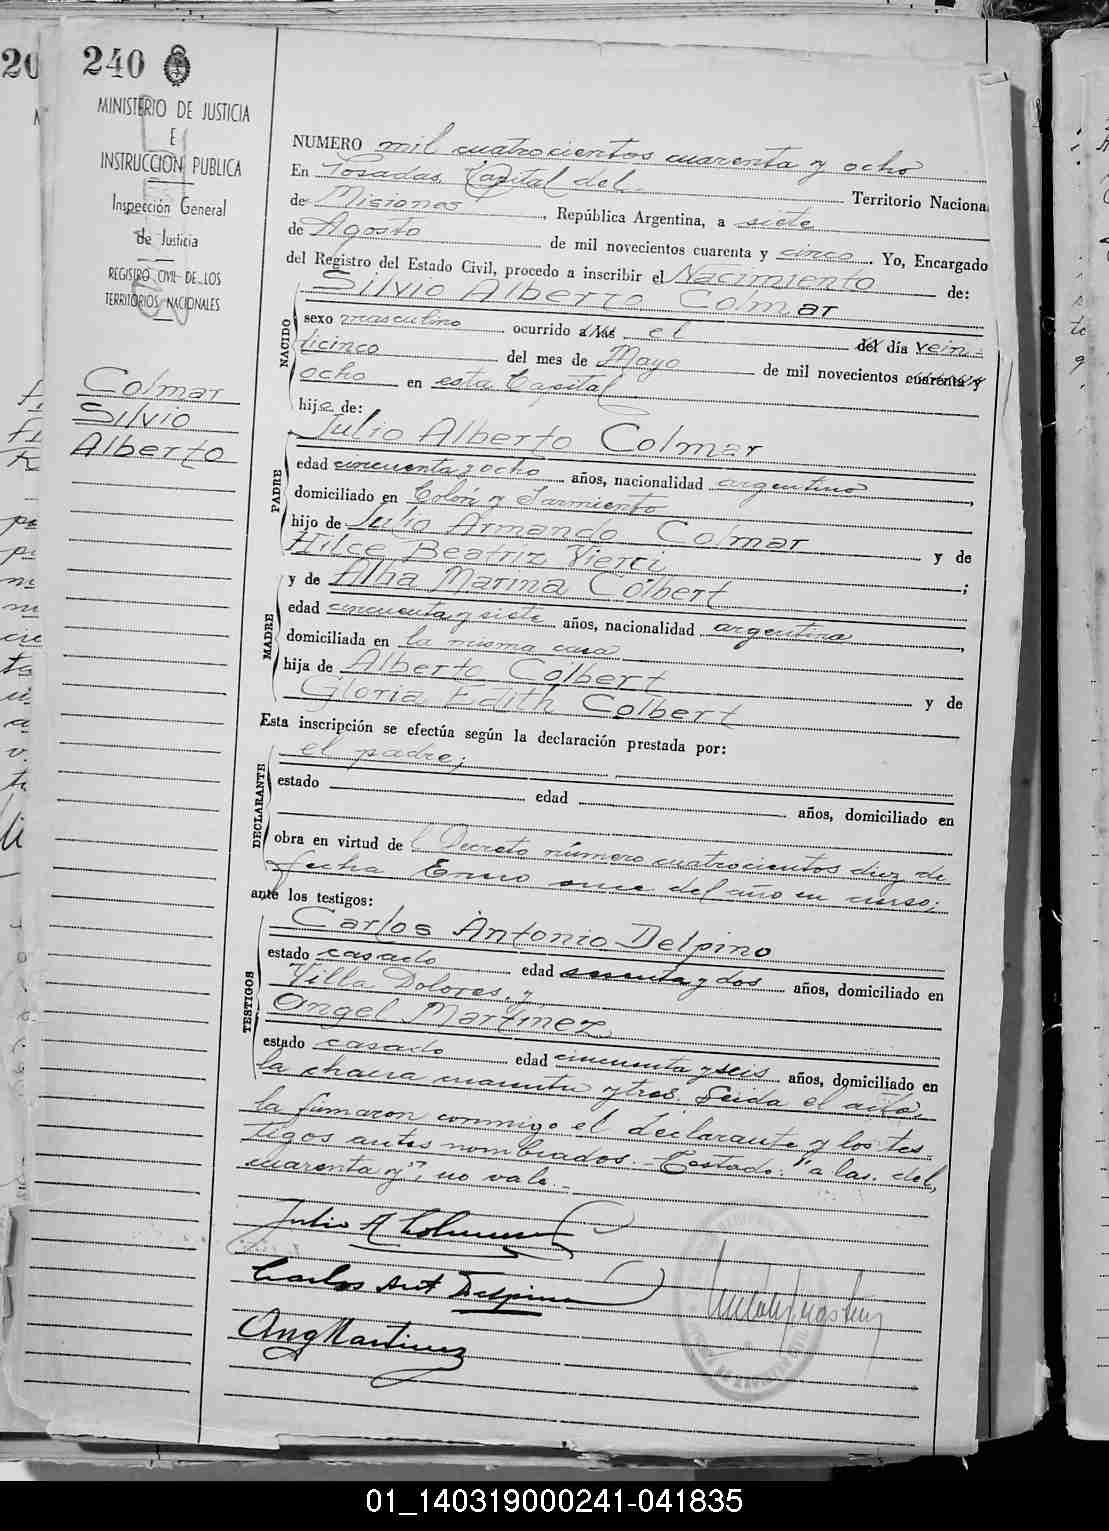 240
MINISTERIO DE JUSTICIA
E
INSTRUCCION PUBLICA
Inspección General
de Justicia
REGISTRO CIVIL DE LOS
TERRITORIOS NACIONALES
Colmar
Silvio
Alberto
NUMERO mil cuatrocientos cuarenta y ocho
En Posadas, Capital del Territorio Nacional
de Misiones, República Argentina, a siete
de Agosto de mil novecientos cuarenta y cinco. Yo, Encargado
del Registro del Estado Civil, procedo a inscribir el Nacimiento de:
Silvio Alberto Colmar
NACIDO
sexo masculino ocurrido a las el del día vein-
ticinco del mes de Mayo de mil novecientos cuarenta y
ocho en esta Capital
hijo de:
Julio Alberto Colmar
PADRE
edad cincuenta y ocho años, nacionalidad argentino,
domiciliado en Colón y Sarmiento
hijo de Julio Armando Colmar y de
Hilce Beatriz Vierci;
y de Alba Marina Colbert
MADRE
edad cincuenta y siete años, nacionalidad argentina,
domiciliada en la misma casa
hija de Alberto Colbert y de
Gloria Edith Colbert
Esta inscripción se efectúa según la declaración prestada por:
el padre;
DECLARANTE
estado edad años, domiciliado en
obra en virtud de l Decreto número cuatrocientos diez de
fecha Enero once del año en curso;
ante los testigos:
Carlos Antonio Delpino
TESTIGOS
estado casado edad y dos años, domiciliado en
Villa Dolores, y
Angel Martinez
estado casado edad cincuenta y seis años, domiciliado en
la chacra cuarenta y tres. Leida el acta,
la firmaron conmigo el declarante y los tes-
tigos antes nombrados.- Testado: "a las. del,
cuarenta y", no vale.-
Julio A Colmar
Carlos Ant Delpino
Ang Martinez
01_140319000241-041835